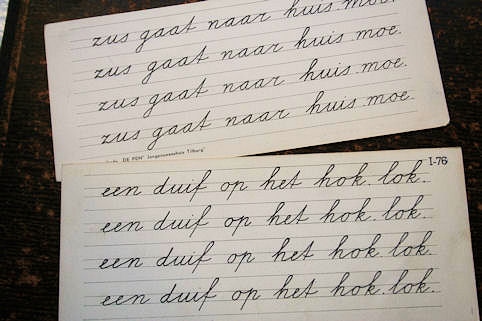 zus gaat naar huis. moe.
zus gaat naar huis. moe.
zus gaat naar huis. moe.
zus gaat naar huis. moe.
DE PEN" Jongensweeshuis Tilburg
I-76
een duif op het hok. lok.
een duif op het hok. lok.
een duif op het hok. lok.
een duif op het hok. lok.